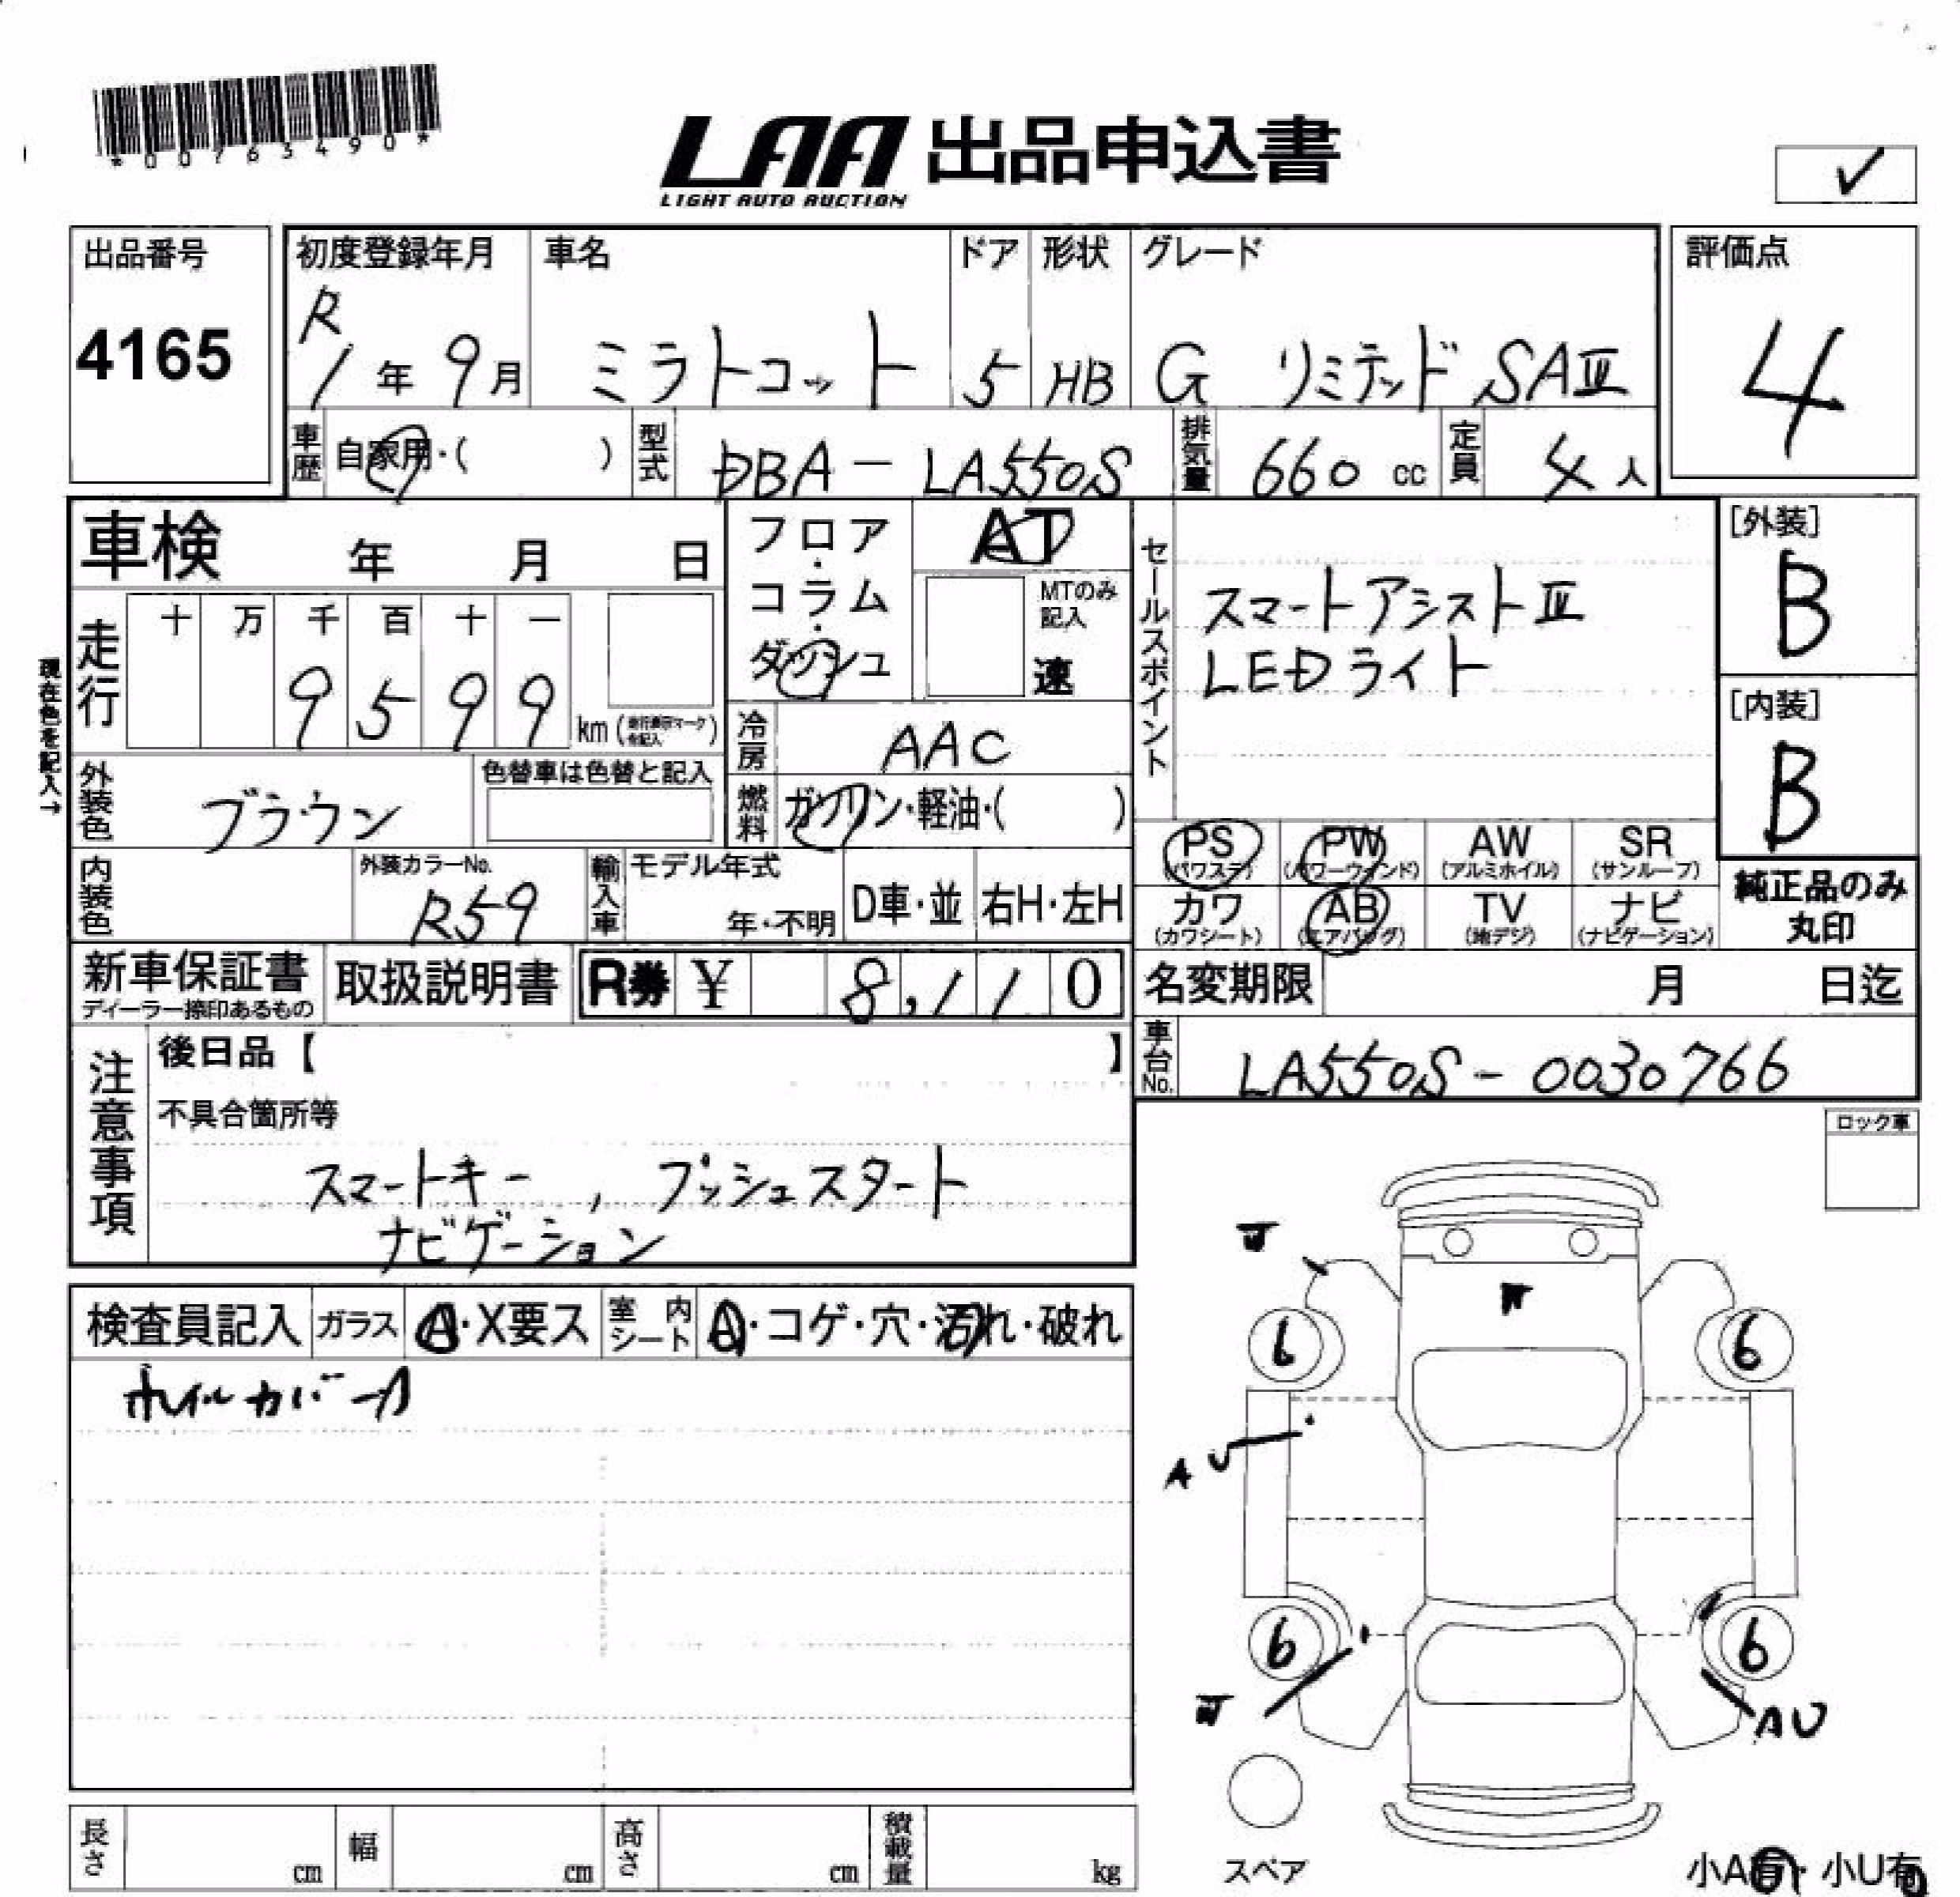 *00763490*
LAA 出品申込書
LIGHT AUTO AUCTION
✓
出品番号
4165
初度登録年月
R1年9月
車名
ミラトコット
ドア
5
形状
HB
グレード
G リミテッド SAⅢ
評価点
4
車歴 自家用・( )
型式 DBA-LA550S
排気量 660 cc
定員 4人
車検 年 月 日
フロア・コラム・ダッシュ
AT
MTのみ記入
速
セールスポイント
スマートアシストⅢ
LEDライト
[外装]
B
[内装]
B
現在色を記入→
走行 十 万 千 百 十 一
9599 km (走行表示マーク を記入)
冷房 AAC
外装色 ブラウン
色替車は色替と記入
燃料 ガソリン・軽油・( )
PS (パワステ)
PW (パワーウインド)
AW (アルミホイル)
SR (サンルーフ)
カワ (カワシート)
AB (エアバッグ)
TV (地デジ)
ナビ (ナビゲーション)
純正品のみ
丸印
内装色
外装カラーNo.
R59
輸入車 モデル年式
年・不明
D車・並
右H・左H
新車保証書
ディーラー捺印あるもの
取扱説明書
R券 ¥ 8,110
名変期限 月 日迄
車台No. LA550S-0030766
注意事項
後日品【 】
不具合箇所等
スマートキー , プッシュスタート
ナビゲーション
ロック車
検査員記入
ガラス A・X要ス
室内シート A・コゲ・穴・汚れ・破れ
ホイルカバーA
6
6
A U
6
6
AU
スペア
長さ cm
幅 cm
高さ cm
積載量 kg
小A有・小U有